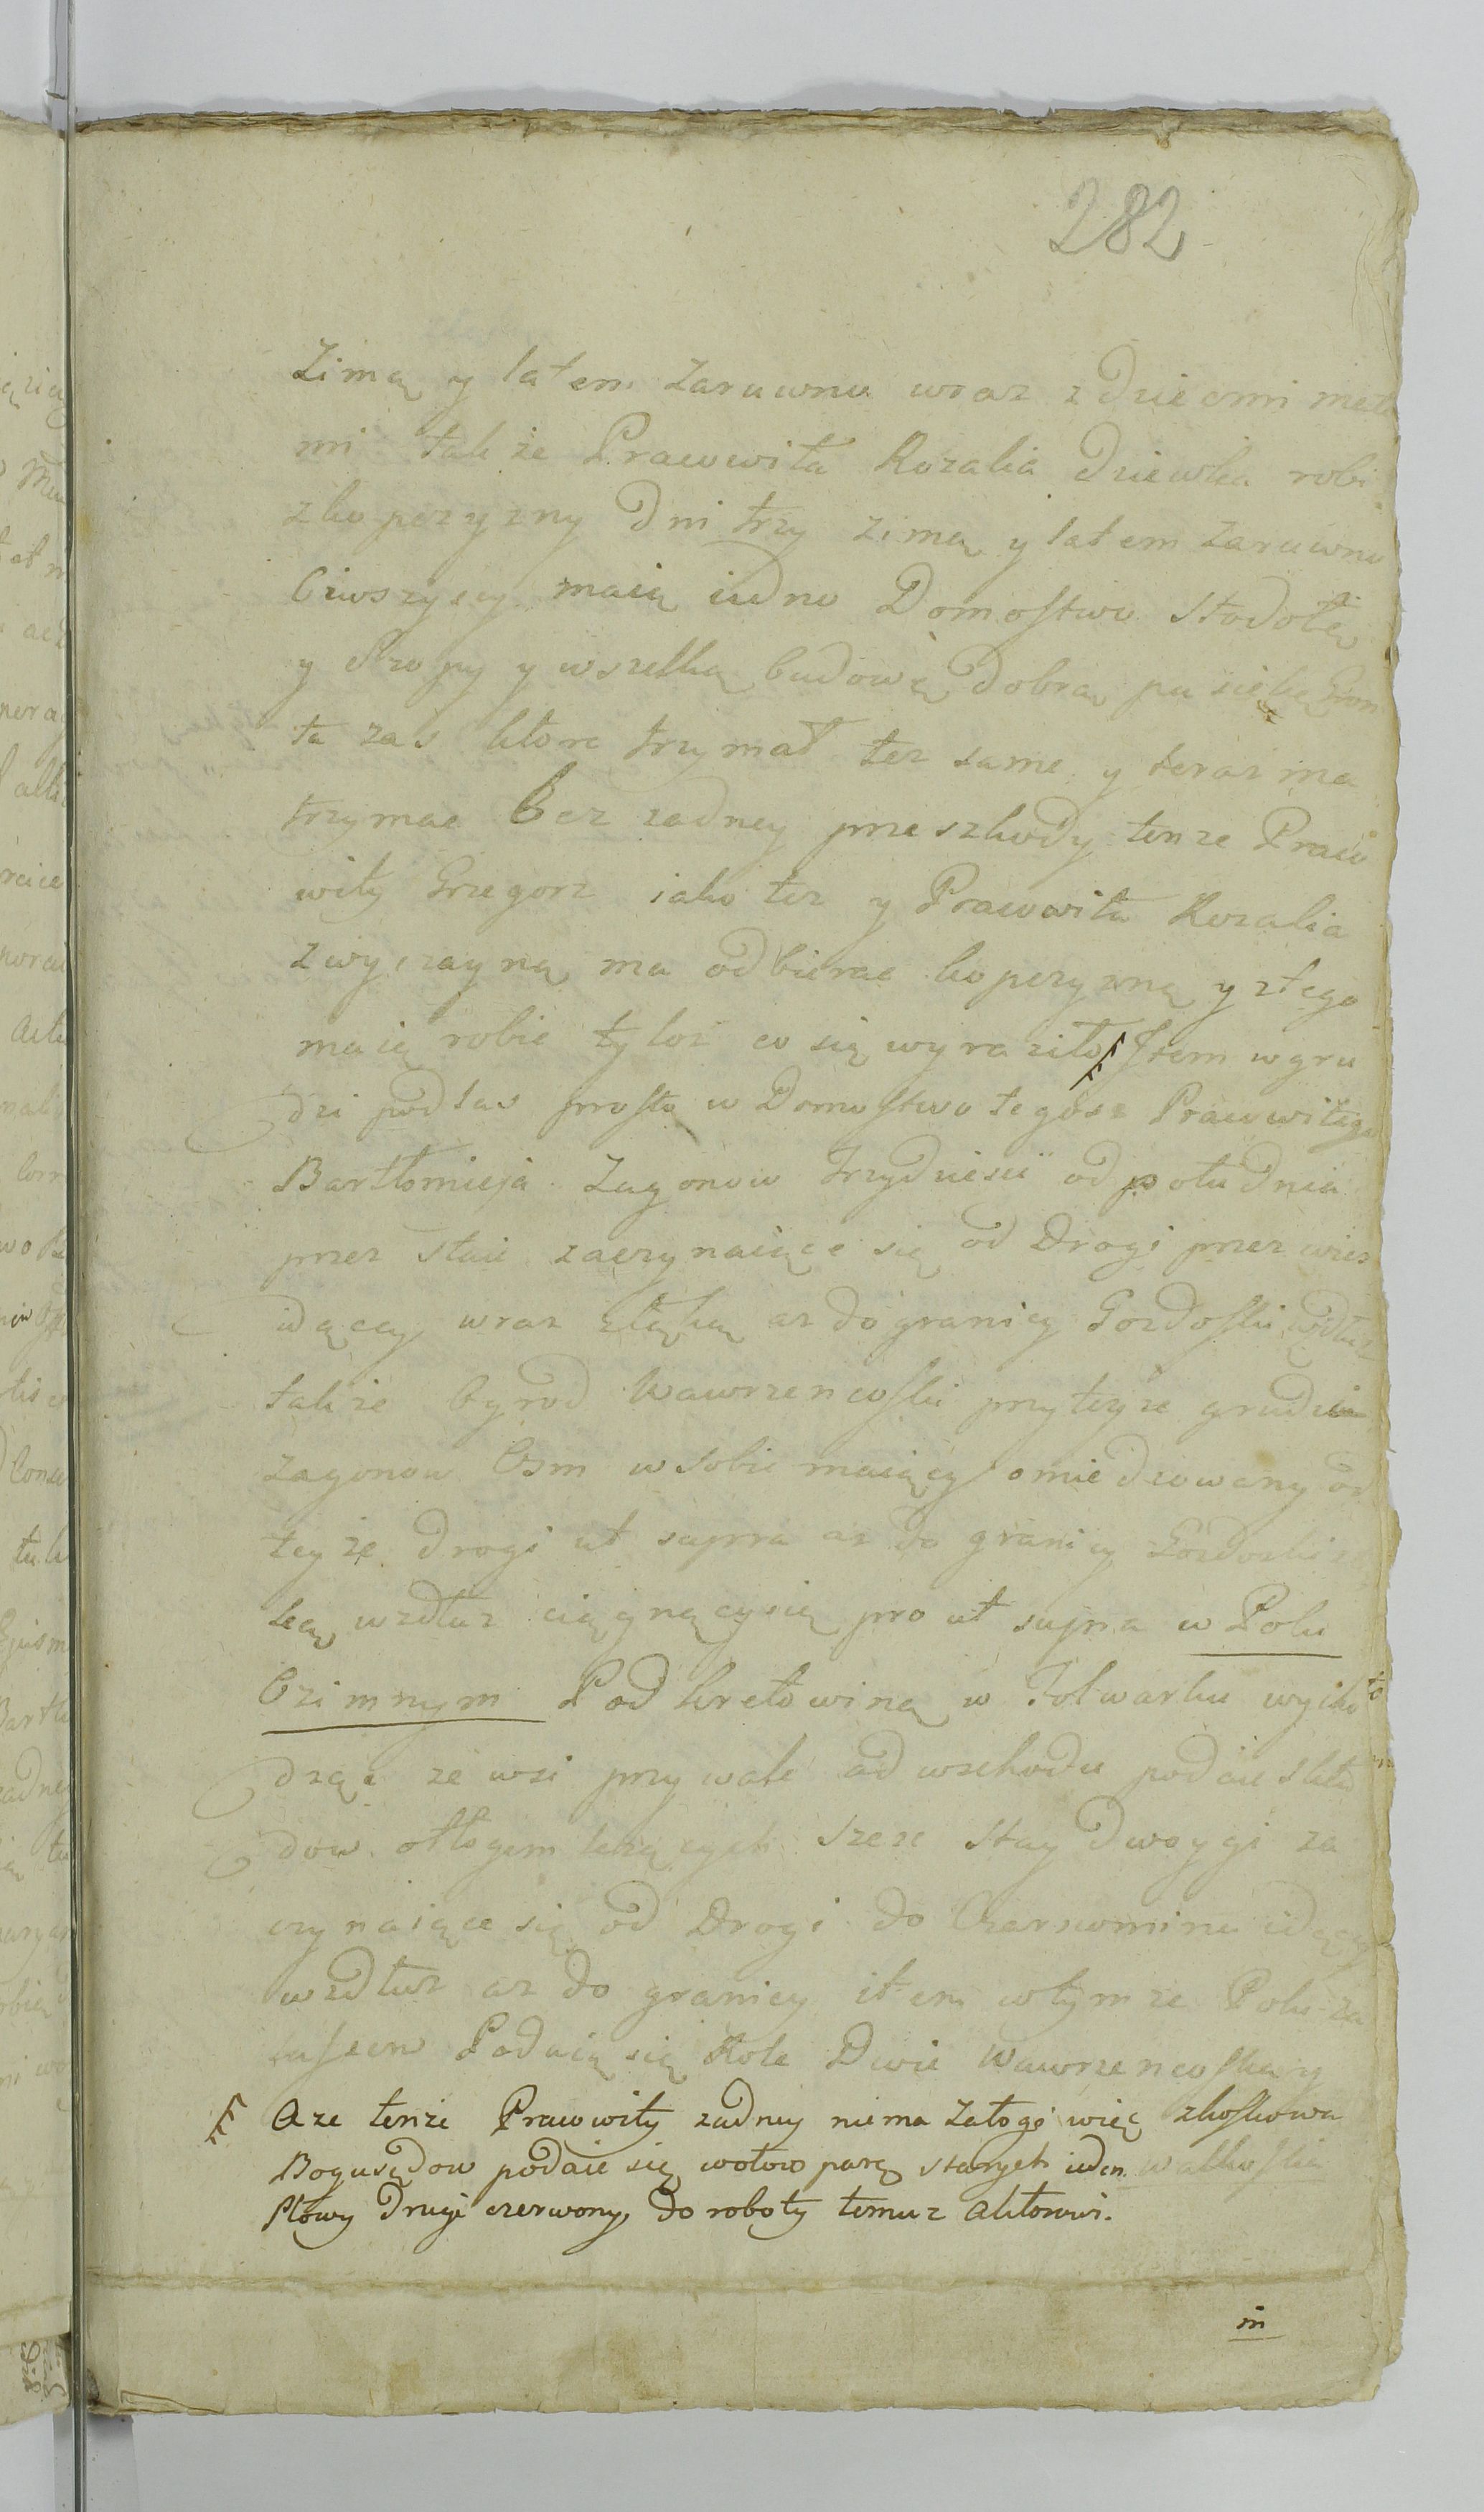 282
Zimą y latem zarawno wraz z Dziecmi meta
mi także Prawowita Rozalia Dziewka robi
zkopczyzny Dni trzy zimą y latem zarawno
Ciwszyscy maią iedno Domostwo Stodołę
y Szopy y wszelką budowę dobrą pasiekę Gron
ta zas ktore trzymał tez same y teraz ma
trzymac bez zadney przeszkody tenze Prawo
wity Grzegorz iako tez y Prawowita Rozalia
zwyczayną ma odbierac kopczyzną y ztego
maią robic tyloz co się wyraziło Item wgru
dzi pod las prosto w Domostwo tegosz Prawowitego
Bartłomieja Zagonow trzydziesci od południa
przez staie zaczynaiące się od Drogi przez wies
idącey wraz złąką az do granicy Gozdoski wdłuz
takze Ogrod Wawrzencoski przyteyze grudzi
zagonow Osm wsobie maiący omiedzowany od
teyze drogi ut supra az do granicy Gozdoski
łeą wzdłuz ciągnącysię pro ut supra w Polu
Ozimnym Pod kretowiną w Folwarku wycho
dząc ze wsi przy wale od wschodu podaie
dow odłogem lezących szesc stay dwoygi za
czynaiące się od Drogi do Czarnomina idącey
wzdłuz az do granicy item wtymze Polu za
lassem Podaią się Role Dwie Wawrzencoska y
Aze tenze Prawowity zadney niema Załogi więc zkoskowa
Bogusędow podaie się wołow parę starych ieden walkoska
Płowy Drugi czerwony, do roboty temuz aktorowi.
in